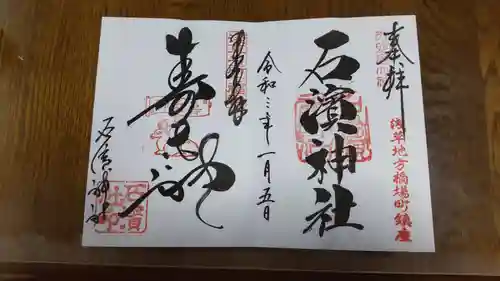 奉拝
浅草地方橋場町鎮座
石濱神社
令和三年一月五日
壽老神
石濱神社